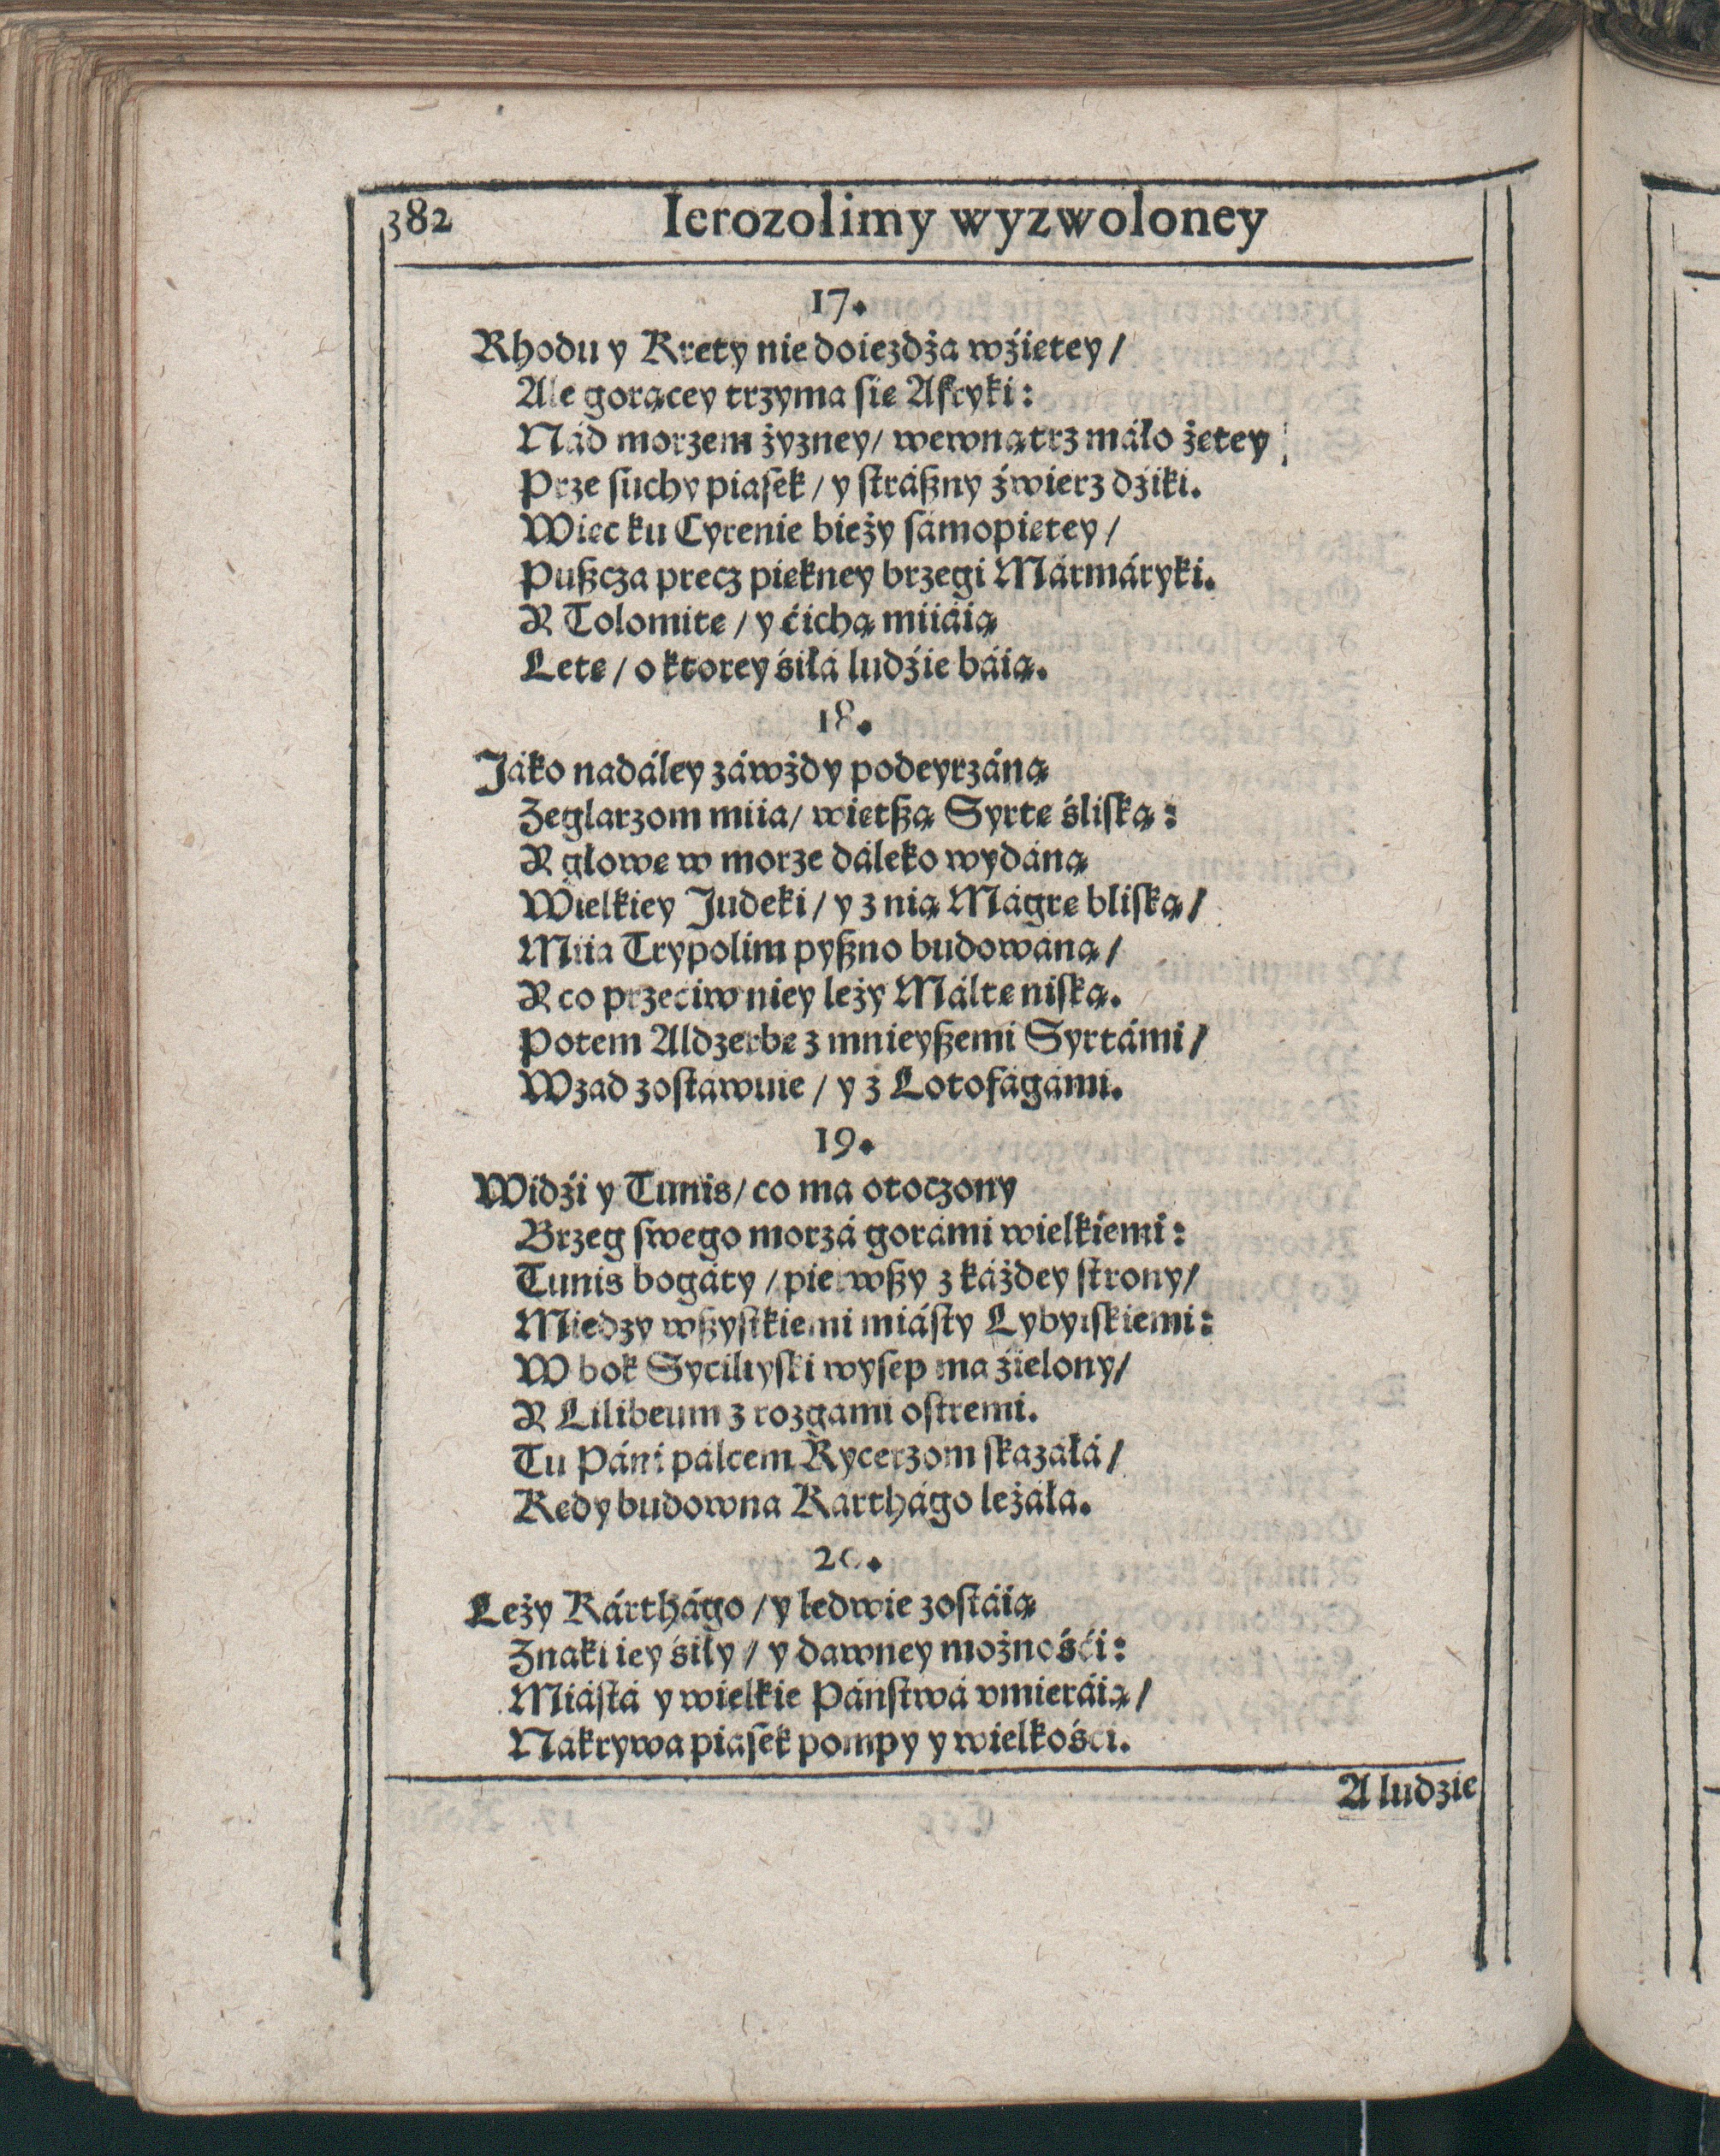 382 Ierozolimy wyzwoloney
17.
Rhodu y Krety nie doieżdża wźiętey /
Ale gorącey trzyma się Afryki:
Nád morzem żyzney / wewnątrz máło żętey
Prze suchy piasek / y strászny źwierz dźiki.
Więc ku Cyrenie bieży sámopiętey /
Puszcza precz piękney brzegi Mármáryki.
Y Tolomitę / y ćichą miiáią
Letę / o ktorey śiłá ludźie báią.
18.
Jáko nadáley záwżdy podeyrzáną
Zeglarzom miia / więtszą Syrtę śliską:
Y głowę w morze dáleko wydáną
Wielkiey Judeki / y z nią Mágrę bliską /
Miia Trypolim pyszno budowáną /
Y co przećiw niey leży Máltę niską.
Potem Aldzerbę z mnieyszemi Syrtámi /
Wzad zostáwuie / y z Lotofágámi.
19.
Widźi y Tunis / co ma otoczony
Brzeg swego morzá gorámi wielkiemi:
Tunis bogáty / pierwszy z káżdey strony /
Miedzy wszystkiemi miásty Lybyiskiemi:
W bok Syciliyski wysep ma źielony /
Y Lilibeum z rozgami ostremi.
Tu Páni pálcem Rycerzom skazáłá /
Kędy budowna Kárthágo leżáła.
20.
Leży Kárthágo / y ledwie zostáią
Znaki iey śiły / y dawney możnośći:
Miástá y wielkie Páństwá vmieráią /
Nakrywa piasek pompy y wielkośći.
A ludzie